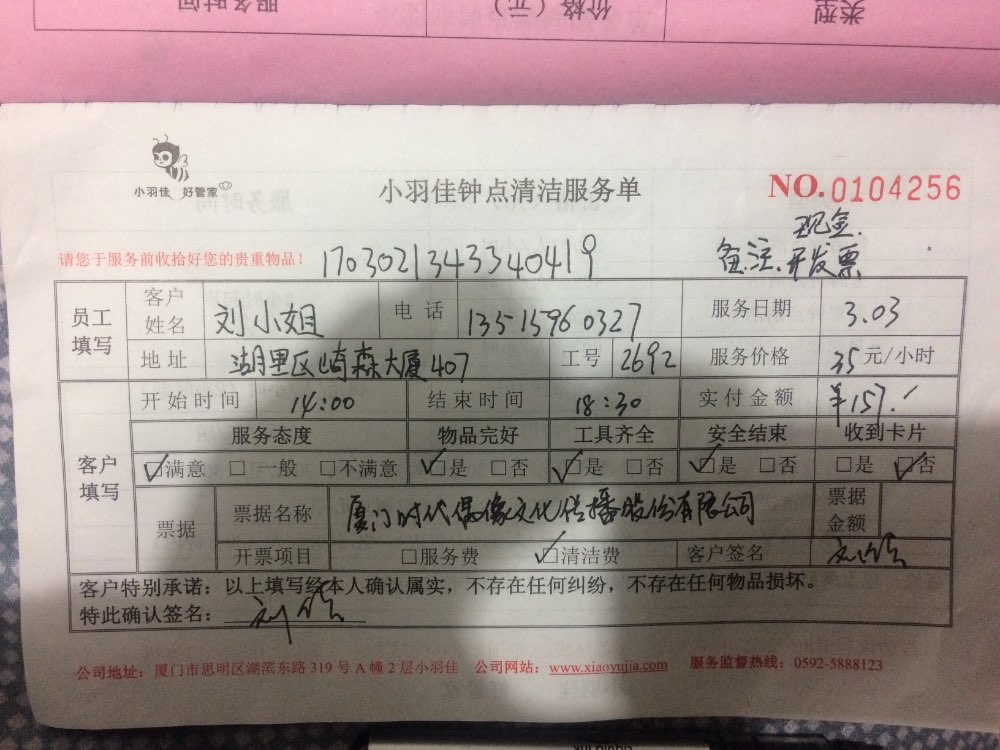 服务时间 价格（元） 类型
小羽佳 好管家
小羽佳钟点清洁服务单
NO.0104256
现金.
请您于服务前收拾好您的贵重物品！ 1703021343340419 备注、开发票
员工填写 客户姓名 刘小姐 电话 13515960327 服务日期 3.03
地址 湖里区崎森大厦407 工号 2692 服务价格 35元/小时
开始时间 14:00 结束时间 18:30 实付金额 ¥157.
服务态度 物品完好 工具齐全 安全结束 收到卡片
客户填写 ☑满意 □一般 □不满意 ☑是 □否 ☑是 □否 ☑是 □否 □是 ☑否
票据 票据名称 厦门时代偶像文化传播股份有限公司 票据金额
开票项目 □服务费 ☑清洁费 客户签名
客户特别承诺：以上填写经本人确认属实，不存在任何纠纷，不存在任何物品损坏。
特此确认签名：
公司地址：厦门市思明区湖滨东路319号A幢2层小羽佳 公司网站：www.xiaoyujia.com 服务监督热线：0592-5888123